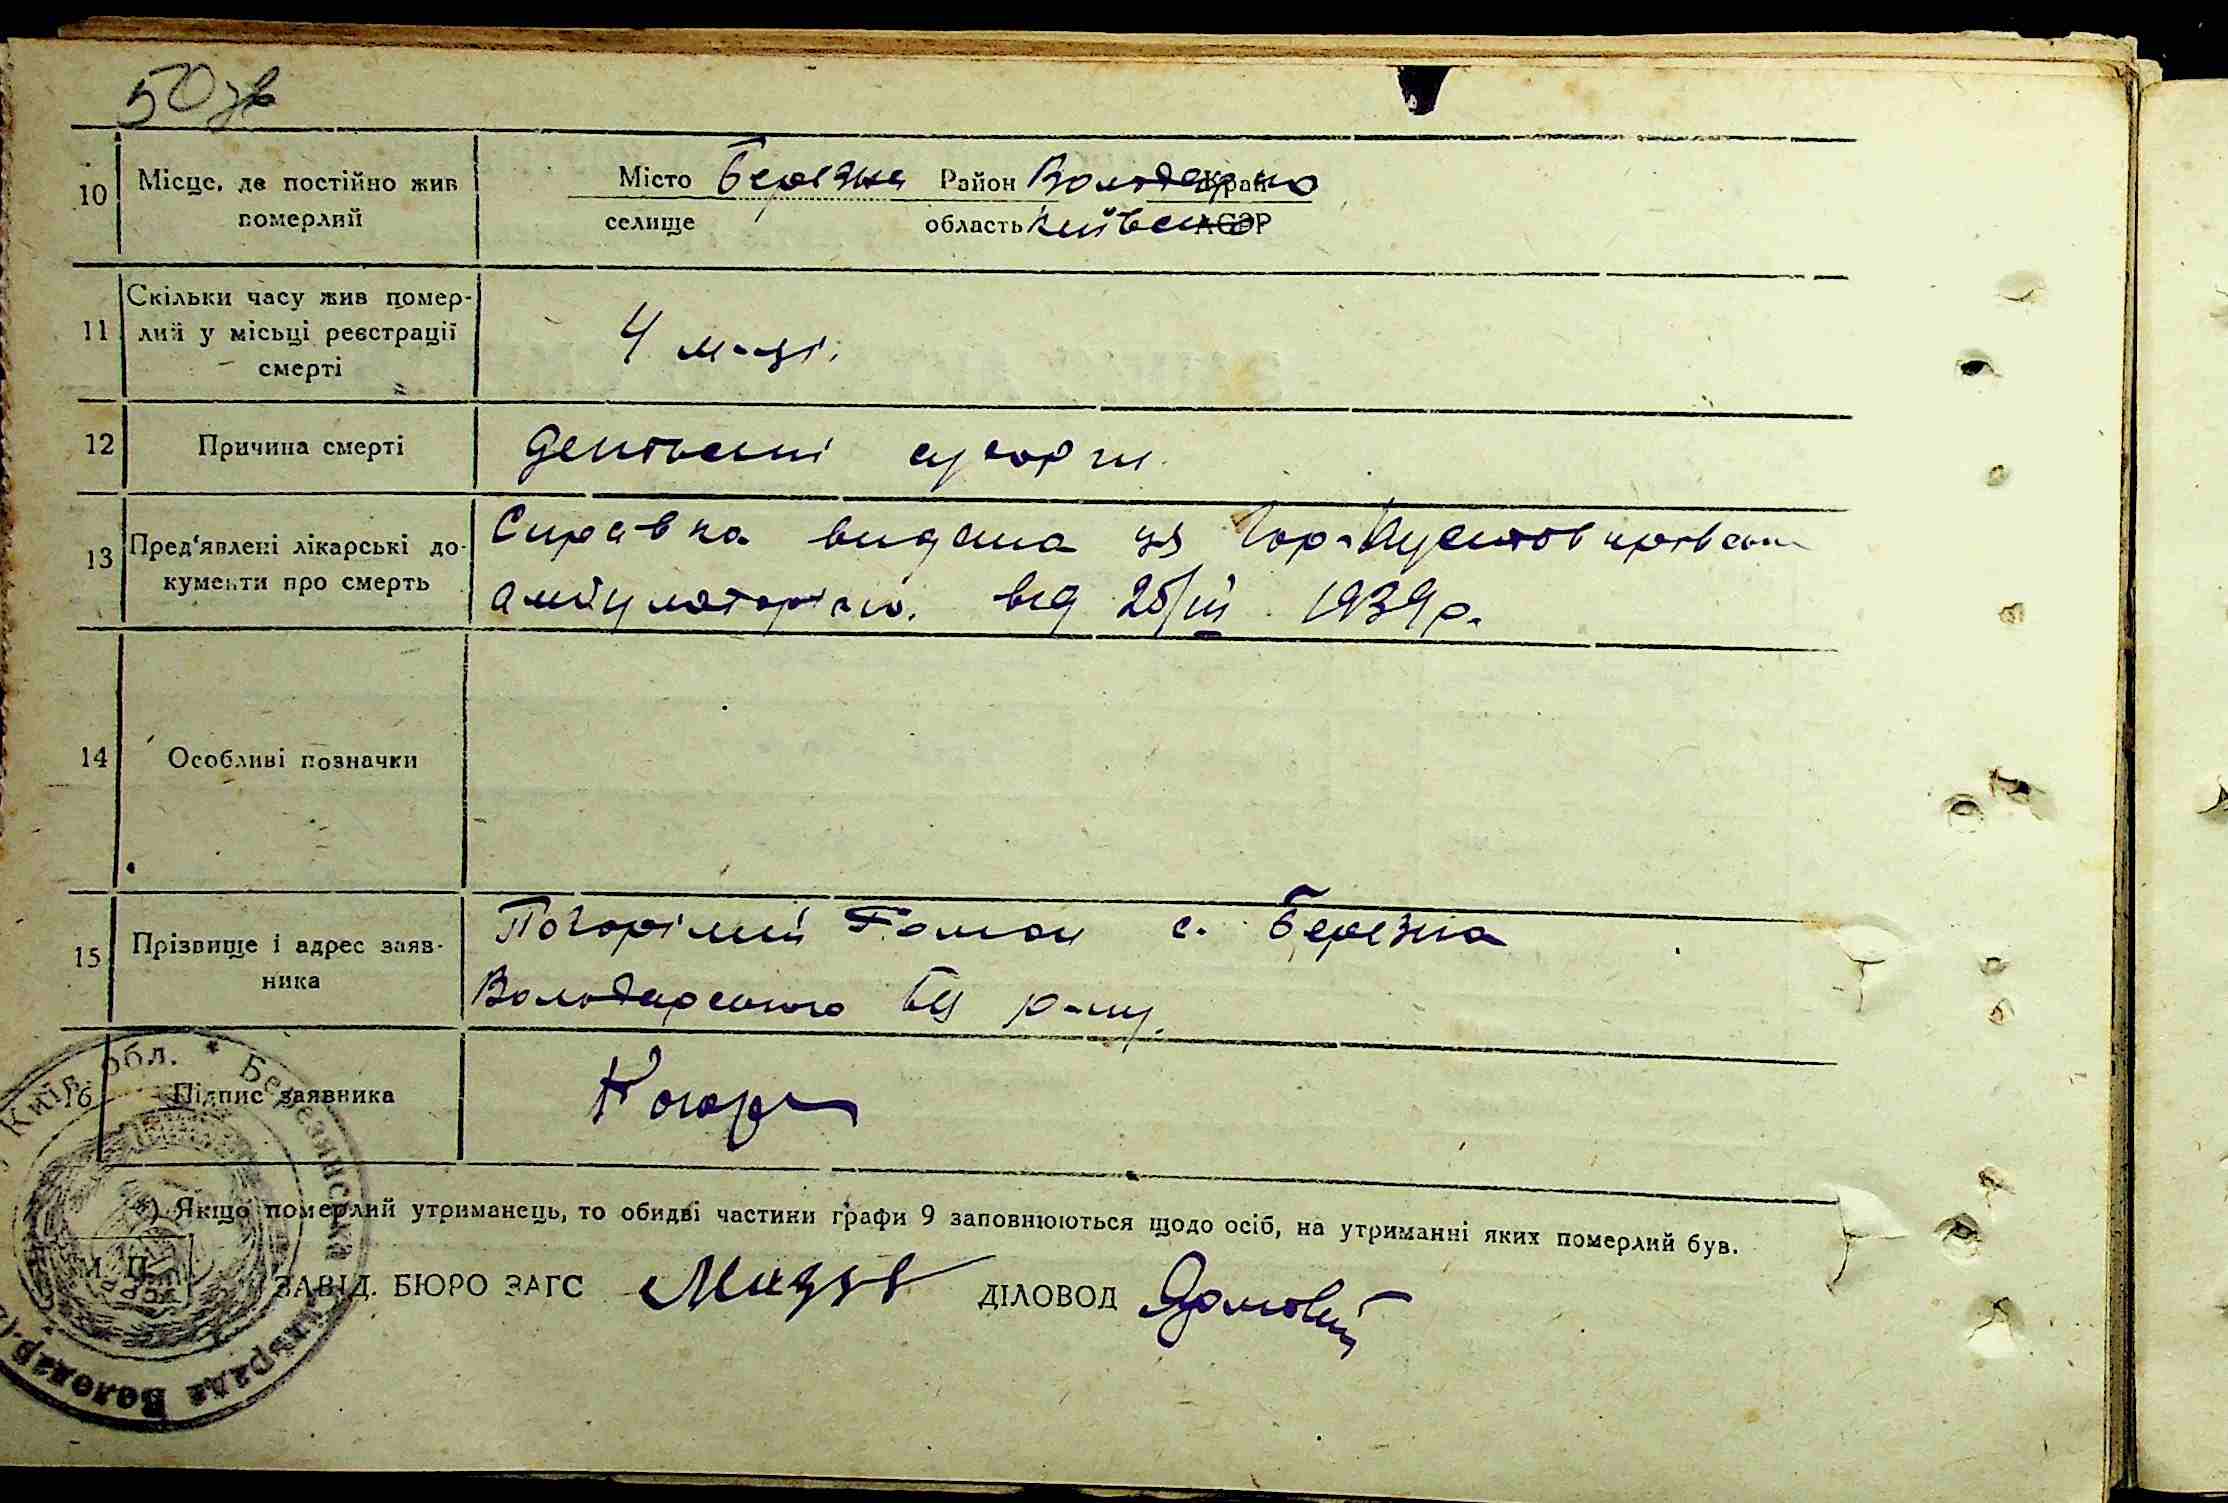 50 зв
10 Місце, де постійно жив померлий
Місто Березна Район Володарсько Край
селище область Київсько АСЭР
11 Скільки часу жив помер-
лий у місьці реєстрації
смерті
4 м-ці.
12 Причина смерті
Дентскші
13 Пред'явлені лікарські до-
кументи про смерть
Справка видана
амбулаторією. від 26/III 1939 р.
14 Особливі позначки
15 Прізвище і адрес заяв-
ника
Погорілий Роман с. Березна
Володарського р-ну.
16 Підпис заявника
Погор
*) Якщо померлий утриманець, то обидві частини графи 9 заповнюються щодо осіб, на утриманні яких померлий був.
М. П.
ЗАВІД. БЮРО ЗАГС ДІЛОВОД
Київ. обл. * Березянська сільрада Володар.